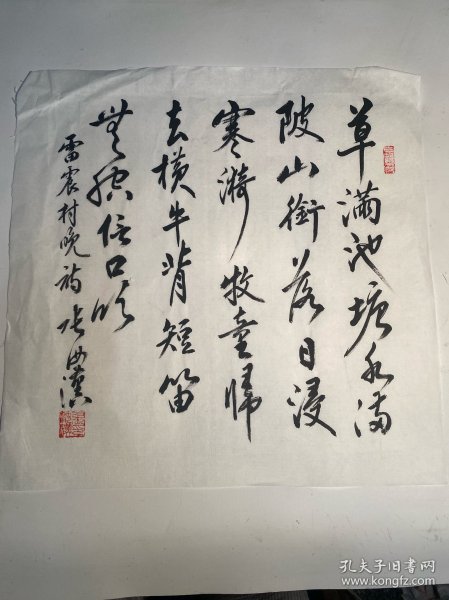 草滿池塘水滿
陂山銜落日浸
寒漪牧童歸
去橫牛背短笛
無腔信口吹
雷震村晚詩 張
孔夫子旧书网
www.kongfz.com